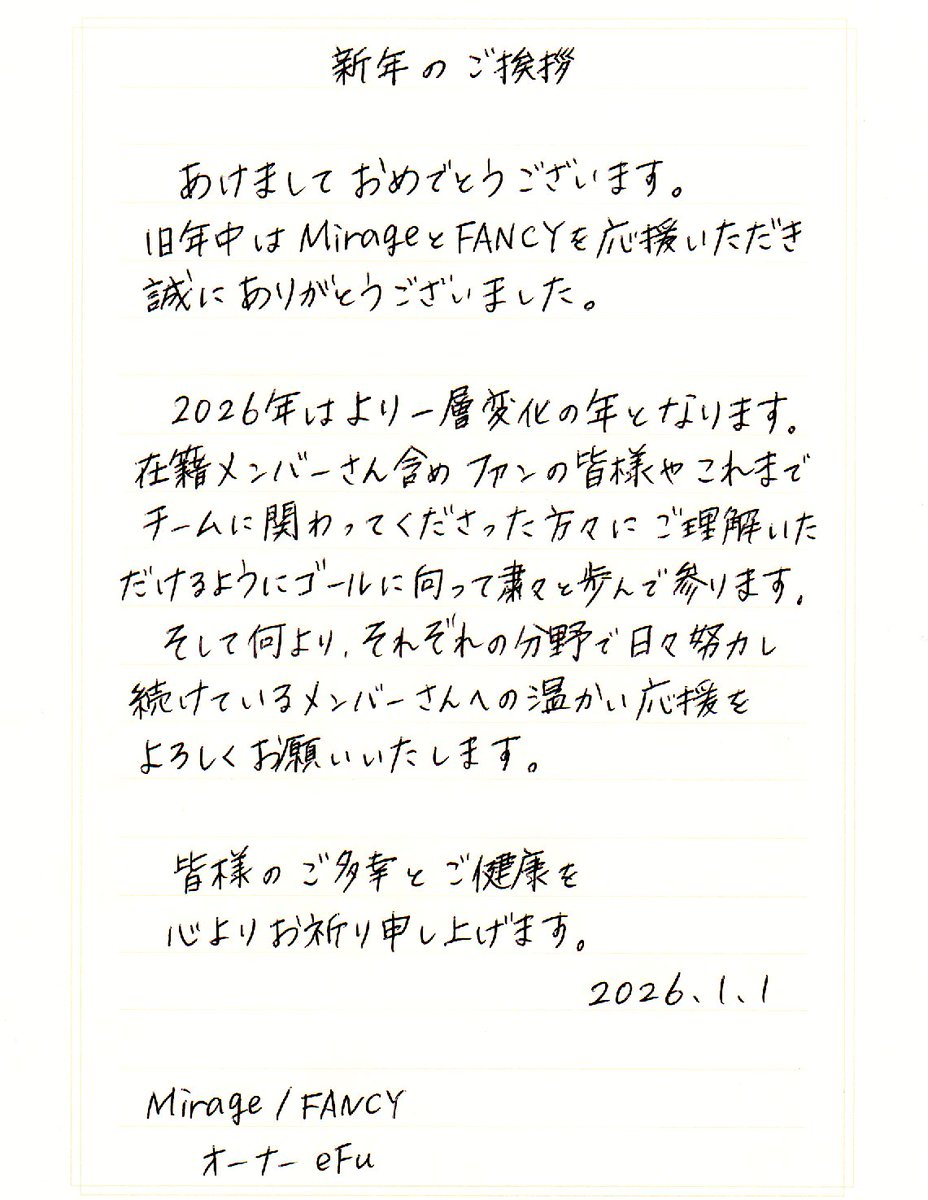 新年のご挨拶
あけましておめでとうございます。
旧年中はMirageとFANCYを応援いただき
誠にありがとうございました。
2026年はより一層変化の年となります。
在籍メンバーさん含めファンの皆様やこれまで
チームに関わってくださった方々にご理解いた
だけるようにゴールに向って粛々と歩んで参ります。
そして何より、それぞれの分野で日々努力し
続けているメンバーさんへの温かい応援を
よろしくお願いいたします。
皆様のご多幸とご健康を
心よりお祈り申し上げます。
2026.1.1
Mirage/FANCY
オーナー eFu